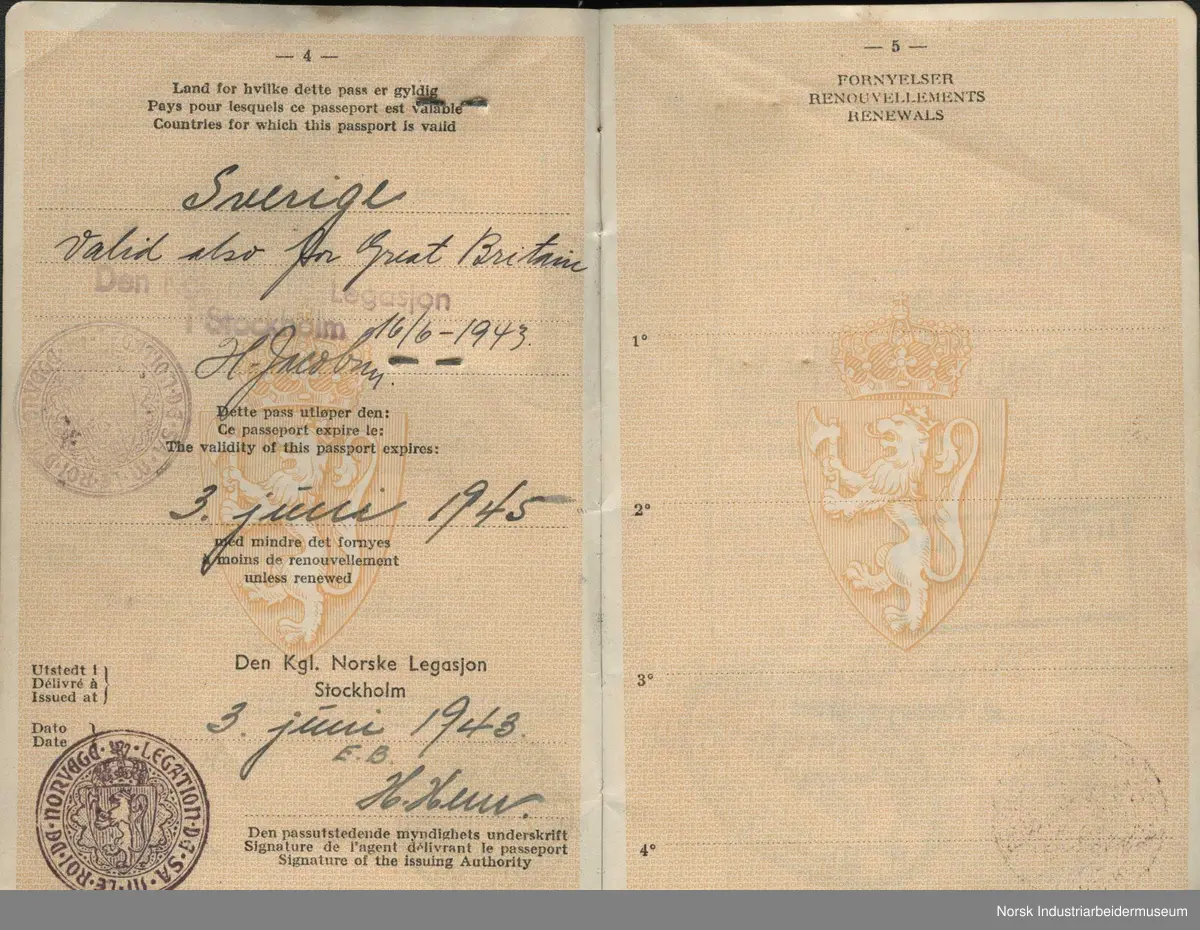 — 4 —
Land for hvilke dette pass er gyldig
Pays pour lesquels ce passeport est valable
Countries for which this passport is valid
Sverige
Valid also for Great Britain
Den Legasjon
i Stockholm
16/6-1943.
H. Jacobsen.
Dette pass utløper den:
Ce passeport expire le:
The validity of this passport expires:
3. juni 1945
med mindre det fornyes
à moins de renouvellement
unless renewed
Utstedt i
Délivré à
Issued at
Den Kgl. Norske Legasjon
Stockholm
Dato
Date
3. juni 1943.
E.B.
LEGATION·DE·SA·M·LE·ROI·DE·NORVÈGE
Den passutstedende myndighets underskrift
Signature de l'agent délivrant le passeport
Signature of the issuing Authority
— 5 —
FORNYELSER
RENOUVELLEMENTS
RENEWALS
1°
2°
3°
4°
Norsk Industriarbeidermuseum